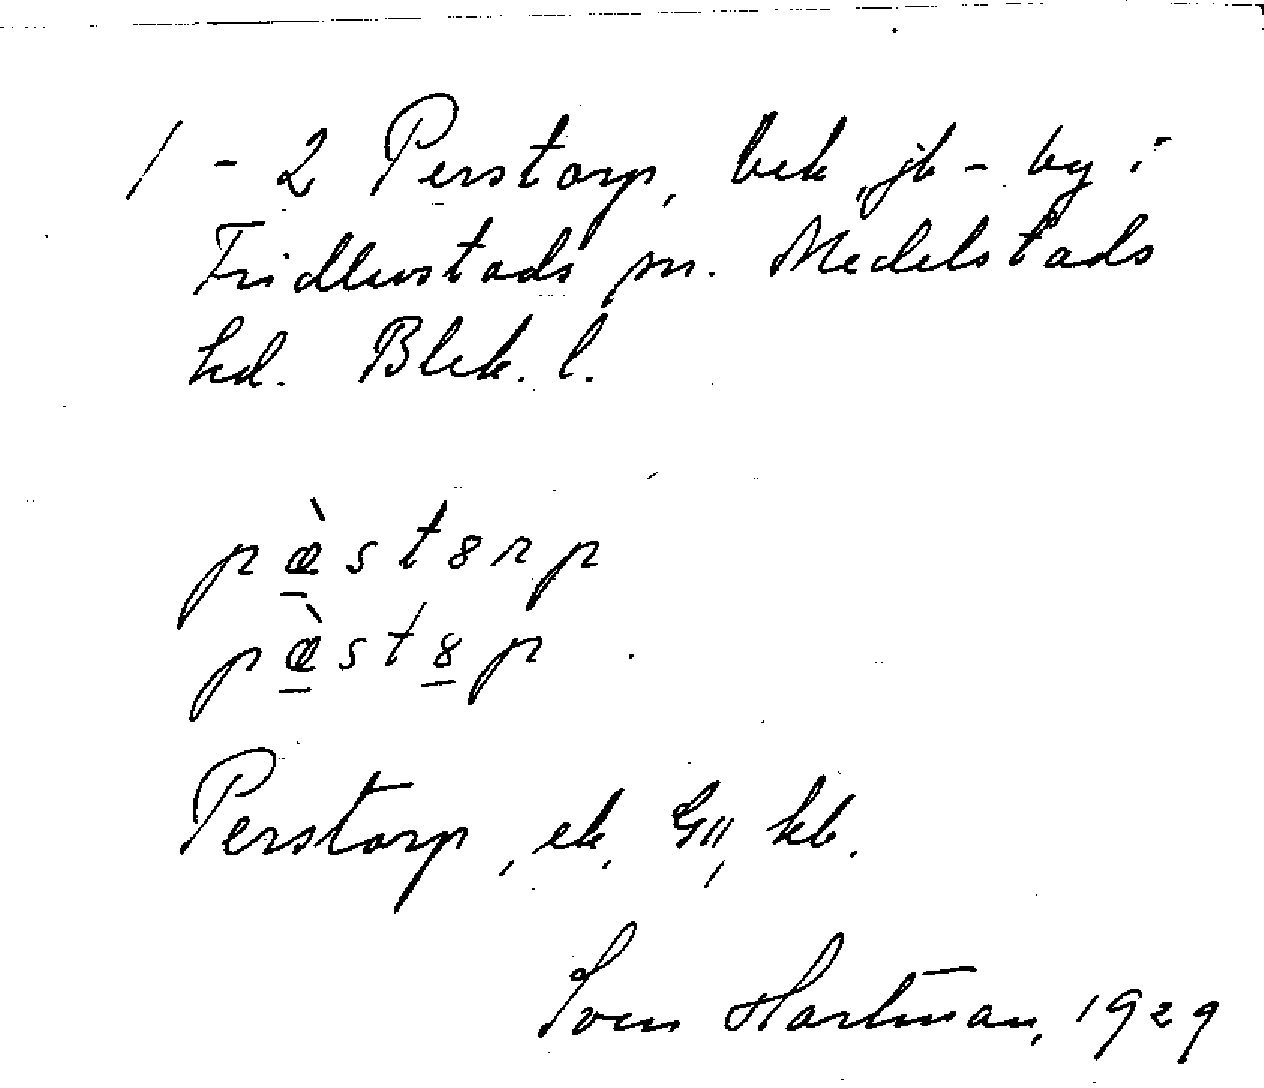 1 - 2 Perstorp, bek, jb - by i
Fridlevstads sn. Medelstads
hd. Blek. l.
pæ̠̀st8rp
pæ̠̀st8̠p
Perstorp, ek, G11, kb.
Sven Hartman, 1929